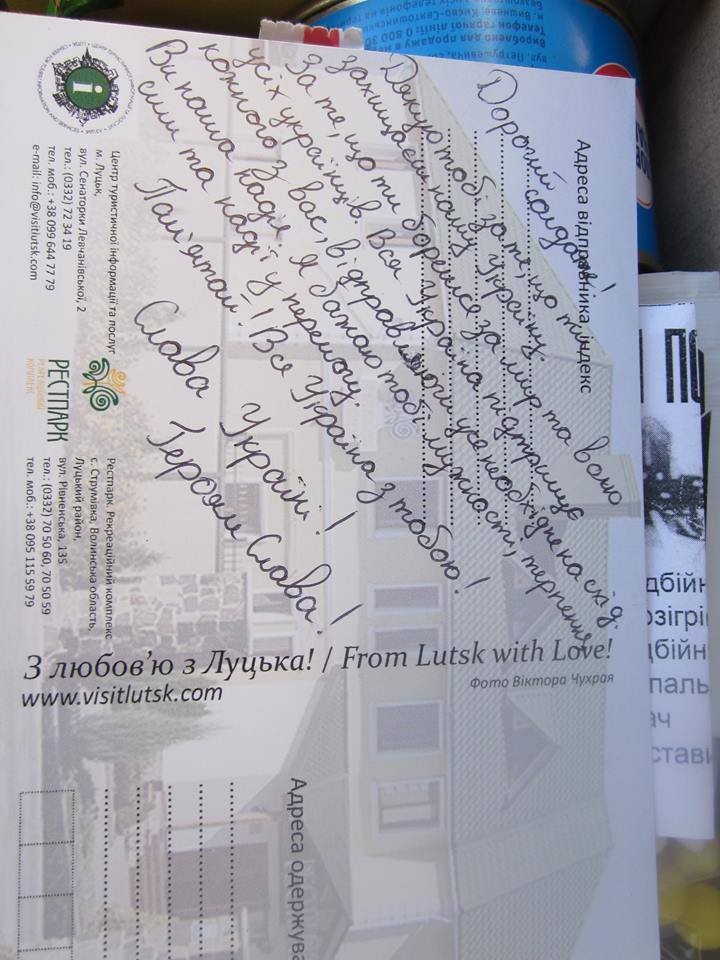 Адреса відправника
індекс
Дорогий солдате!
Дякую тобі за те, що ти
захищаєш нашу Україну.
За те, що ти борешся за мир та волю
усіх українців. Вся Україна підтримує
кожного з вас, відправляючи усе необхідне на схід.
Ви наша надія. Я бажаю тобі мужності, терпення,
сили та надії у перемогу.
Пам'ятай! Вся Україна з тобою!
Слава Україні!
Героям Слава!
Центр туристичної інформації та послуг
м. Луцьк,
вул. Сенаторки Левчанівської, 2
тел.: (0332) 72 34 19
тел. моб.: +38 099 644 77 79
e-mail: info@visitlutsk.com
РЕСТПАРК
РЕКРЕАЦІЙНИЙ
КОМПЛЕКС
Рестпарк. Рекреаційний комплекс
с. Струмівка, Волинська область,
Луцький район,
вул. Рівненська, 135
тел.: (0332) 70 50 60, 70 50 59
тел. моб.: +38 095 115 59 79
З любов'ю з Луцька! / From Lutsk with Love!
www.visitlutsk.com
Фото Віктора Чухрая
Адреса одержува
вул. Петрушевича,
Вироблено для продажу в
Телефон гарячої лінії: 0 800 30
м. Вишневе, Києво-Святошинський